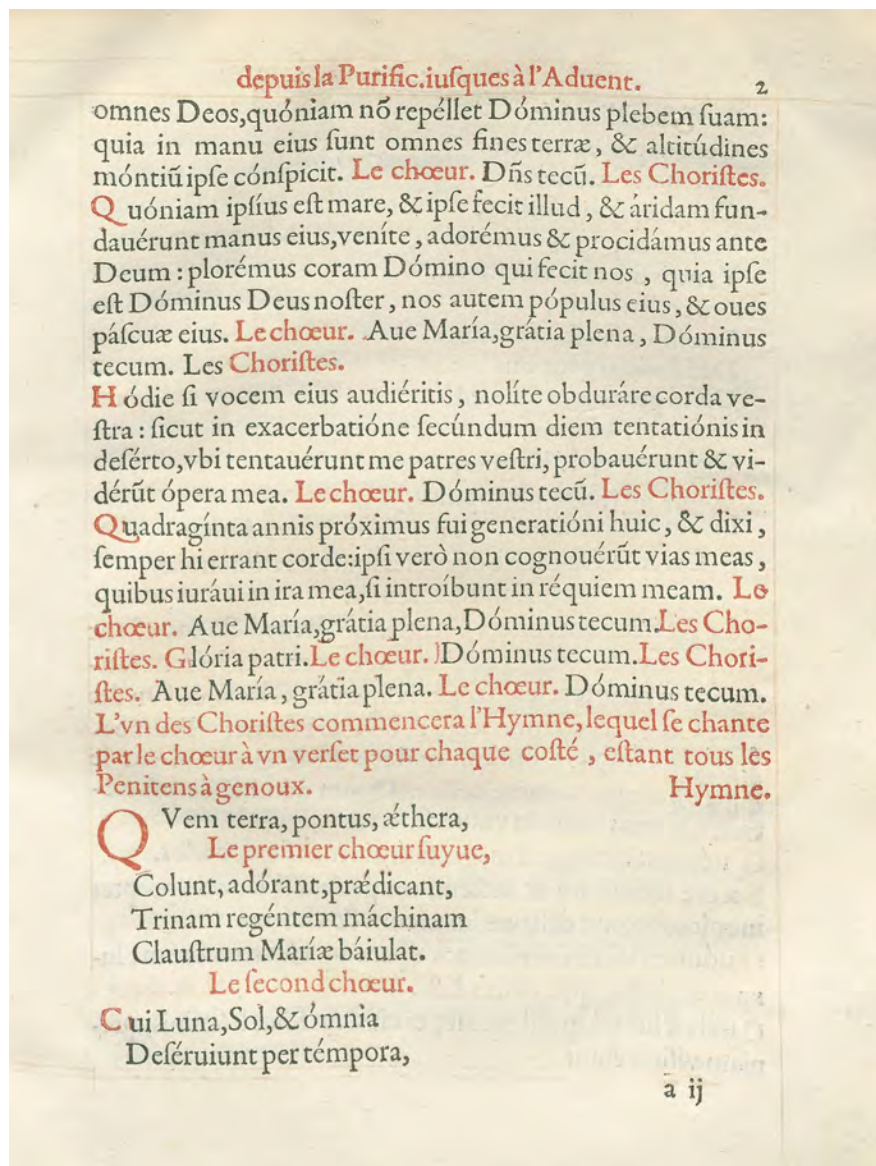 depuis la Purific. iuſques à l'Aduent. 2
omnes Deos, quóniam nõ repéllet Dóminus plebem ſuam:
quia in manu eius ſunt omnes fines terræ, & altitúdines
móntiũ ipſe cónſpicit. Le chœur. Dñs tecũ. Les Choriſtes.
Quóniam ipſíus eſt mare, & ipſe fecit illud, & áridam fun-
dauérunt manus eius, veníte, adorémus & procidámus ante
Deum: plorémus coram Dómino qui fecit nos, quia ipſe
eſt Dóminus Deus noſter, nos autem pópulus eius, & oues
páſcuæ eius. Le chœur. Aue María, grátia plena, Dóminus
tecum. Les Choriſtes.
Hódie ſi vocem eius audiéritis, nolíte obduráre corda ve-
ſtra: ſicut in exacerbatióne ſecúndum diem tentatiónis in
deſérto, vbi tentauérunt me patres veſtri, probauérunt & vi-
dérũt ópera mea. Le chœur. Dóminus tecũ. Les Choriſtes.
Quadragínta annis próximus fui generatióni huic, & dixi,
ſemper hi errant corde: ipſi verò non cognouérũt vias meas,
quibus iuráui in ira mea, ſi introíbunt in réquiem meam. Le
chœur. Aue María, grátia plena, Dóminus tecum. Les Cho-
riſtes. Glória patri. Le chœur. Dóminus tecum. Les Chori-
ſtes. Aue María, grátia plena. Le chœur. Dóminus tecum.
L'vn des Choriſtes commencera l'Hymne, lequel ſe chante
par le chœur à vn verſet pour chaque coſté, eſtant tous les
Penitens à genoux. Hymne.
QVem terra, pontus, ǽthera,
Le premier chœur ſuyue,
Colunt, adórant, prǽdicant,
Trinam regéntem máchinam
Clauſtrum Maríæ báiulat.
Le ſecond chœur.
Cui Luna, Sol, & ómnia
Deſéruiunt per témpora,
a ij